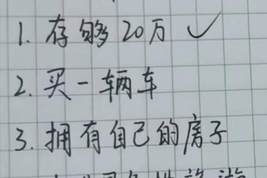 1. 存够20万 ✓
2. 买一辆车
3. 拥有自己的房子